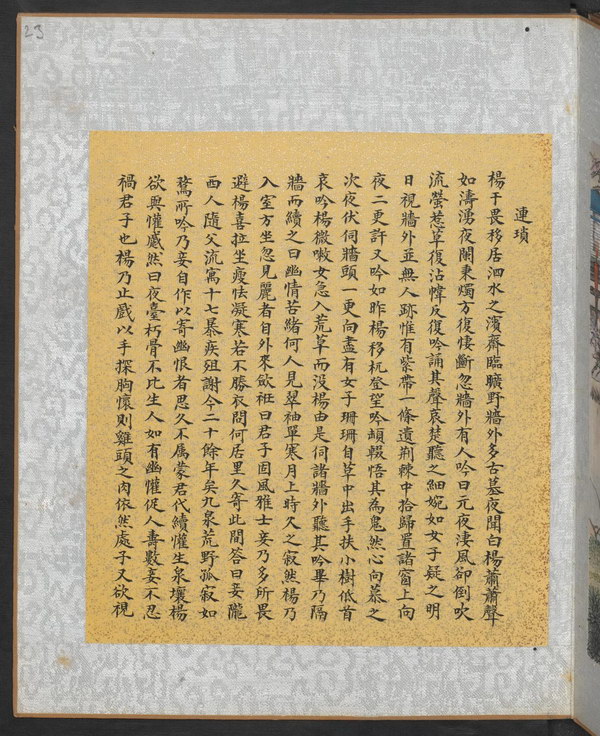 23
連瑣
楊于畏移居泗水之濱齋臨曠野牆外多古墓夜聞白楊蕭蕭聲
如濤湧夜闌秉燭方復悽斷忽牆外有人吟曰元夜淒風卻倒吹
流螢惹草復沾幃反復吟誦其聲哀楚聽之細婉如女子疑之明
日視牆外並無人跡惟有紫帶一條遺荊棘中拾歸置諸窗上向
夜二更許又吟如昨楊移杌登望吟頓輟悟其為鬼然心向慕之
次夜伏伺牆頭一更向盡有女子珊珊自草中出手扶小樹低首
哀吟楊微嗽女急入荒草而沒楊由是伺諸牆外聽其吟畢乃隔
牆而續之曰幽情苦緒何人見翠袖單寒月上時久之寂然楊乃
入室方坐忽見麗者自外來斂衽曰君子固風雅士妾乃多所畏
避楊喜拉坐瘦怯凝寒若不勝衣問何居里久寄此間答曰妾隴
西人隨父流寓十七暴疾殂謝今二十餘年矣九泉荒野孤寂如
鶩所吟乃妾自作以寄幽恨者思久不屬蒙君代續懽生泉壤楊
欲與懽蹙然曰夜臺朽骨不比生人如有幽懽促人壽數妾不忍
禍君子也楊乃止戲以手探胸懷則雞頭之肉依然處子又欲視